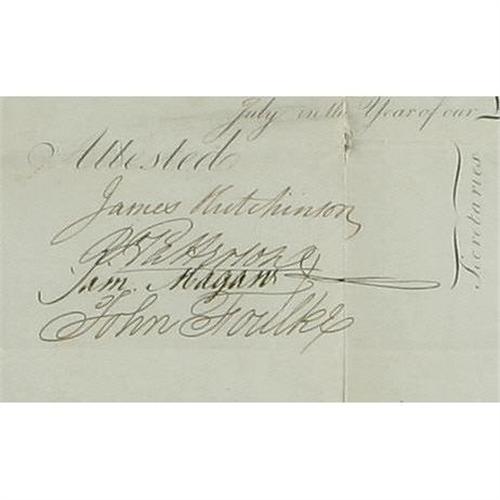 July in the Year of our
Attested
James Hutchinson
Patterson
Sam. Magaw
John Foulke
Secretaries